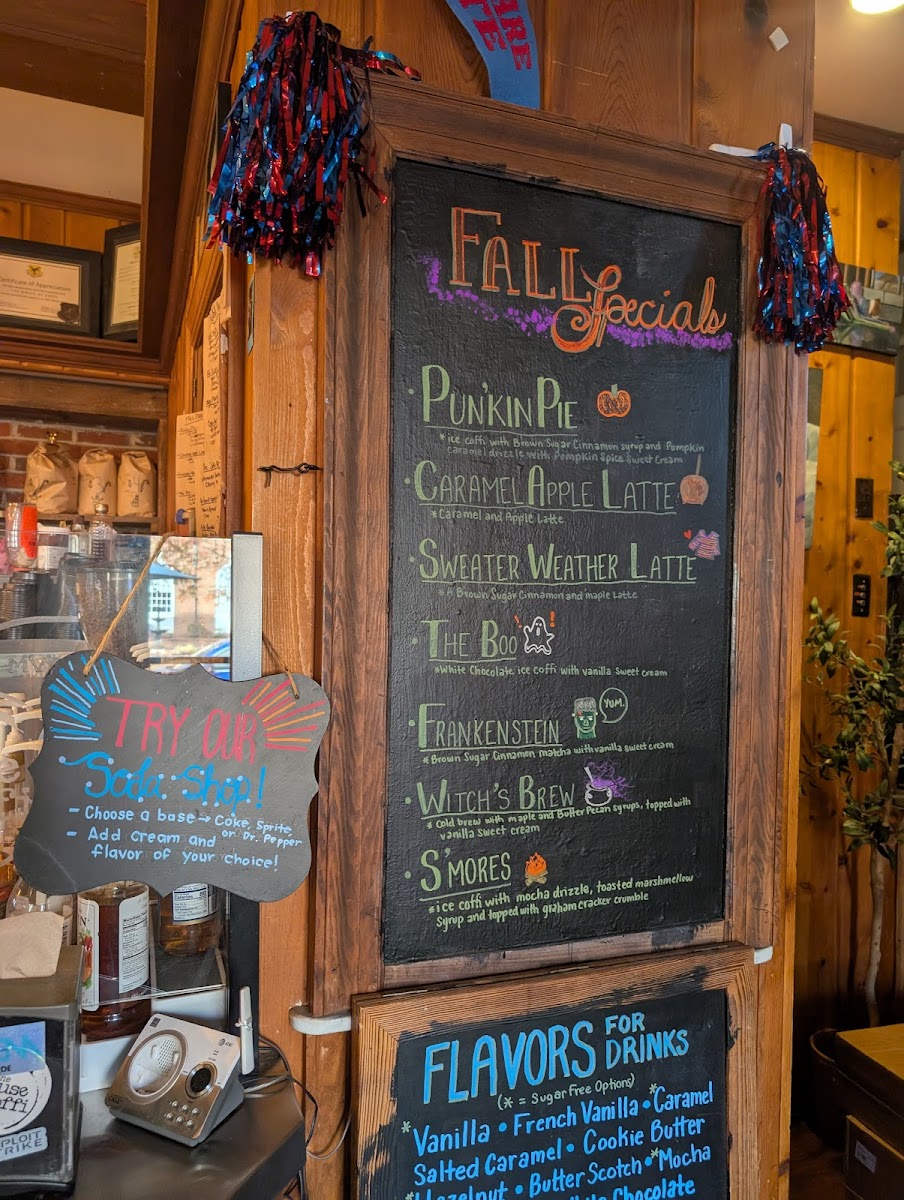 ARE
FE
Certificate of Appreciation
FALL Specials
· PUN'KIN PIE
*ice coffi with Brown Sugar Cinnamon syrup and Pumpkin
caramel drizzle with Pumpkin Spice Sweet Cream
· CARAMEL APPLE LATTE
*Caramel and Apple Latte
· SWEATER WEATHER LATTE
*A Brown Sugar Cinnamon and maple Latte
· THE BOO !
*White Chocolate ice coffi with vanilla sweet cream
· FRANKENSTEIN YUM.
*Brown Sugar Cinnamon matcha with vanilla sweet cream
· WITCH'S BREW
*Cold brew with maple and Butter Pecan syrups, topped with
vanilla sweet cream
· S'MORES
*ice coffi with mocha drizzle, toasted marshmellow
syrup and topped with graham cracker crumble
TRY OUR
Soda Shop!
- Choose a base → Coke, Sprite,
or Dr. Pepper
- Add cream and
flavor of your choice!
FLAVORS FOR
DRINKS
(* = Sugar Free Options)
*Vanilla · French Vanilla · *Caramel
Salted Caramel · Cookie Butter
*Hazelnut · Butter Scotch · *Mocha
White Chocolate
AT&T
DE
he
use
ffi
PLOIT
RIKE